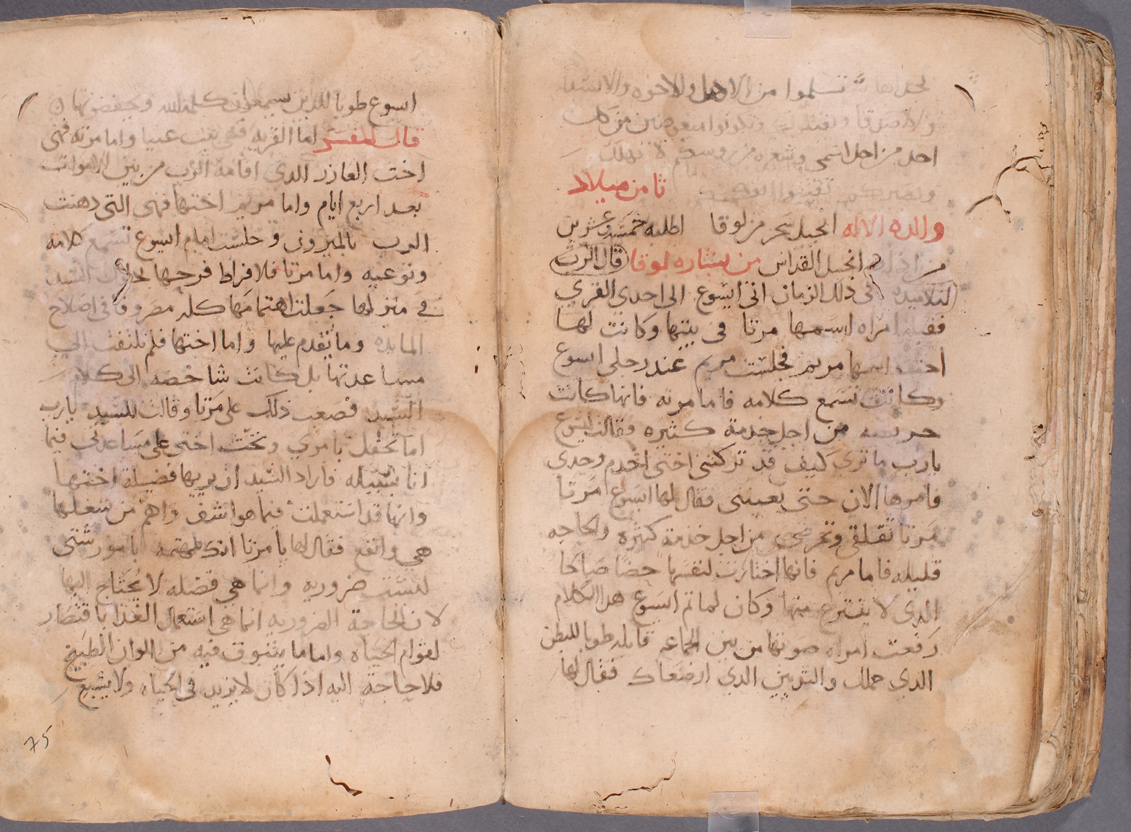 تسلموا من الاهل والاخوه والاصدقا
احد من اجل اسمي وشعره من روسكم لا تهلك
ثامن ميلاد
والدة الاله انجيل سحر من لوقا اطلبه خمسه وعشرين
انجيل القداس من بشاره لوقا قال الرب
لتلاميذه في ذلك الزمان اتى ايسوع الى احدى القرى
فقبلتها امراه اسمها مرتا في بيتها وكانت لها
اخت اسمها مريم فجلست مريم عند رجلي ايسوع
وكانت تسمع كلامه فاما مرته فانها كانت
حريصه من اجل خدمة كثيره وقالت ليسوع
يارب ما ترى كيف قد تركتني اختي اخدم وحدي
فامرها الان حتى تعينني فقال لها ايسوع مرتا
مرتا تقلقي وتحرصي من اجل خدمة كثيره والحاجه
قليله فاما مريم فانها اختارت لنفسها حضا صالحا
الدي لا ينتزع منها وكان لما تم ايسوع هدا الكلام
رفعت امراه صوتها من بين الجماعه قايله طوبا للبطن
الدي حملك والتديين الدي ارضعاك فقال لها
ايسوع طوبا للدين يسمعون كلمة الله ويحفضونها
قال المفسر اما القريه فهي بيت عنيا واما مرته فهي
اخت العازر الدي اقامه الرب من بين الاموات
بعد اربع ايام واما مريم اختها فهي التي دهنت
الرب بالميرون وجلست امام ايسوع تسمع كلامه
ونوعيه واما مرتا فلافراط فرحها السيد
في منزلها جعلت اهتمامها كله مصروفا في اصلاح
المايده وما تقدم عليها واما اختها فلم تلتفت الى
مساعدتها بل كانت شاخصه الى كلام
السيد فصعب دلك على مرتا وقالت للسيد يارب
اما تحفل بامري وتحث اختي على مساعدتي فيما
انا بسبيله فاراد السيد ان يريها فضيلة اختها
وانها قد استعملت فيما هو اشف واهم من شغلها
هي واتفع فقال لها يا مرتا انك مهتمه بامور شتى
ليست ضروريه وانما هي فضله لا يحتاج اليها
لان الحاجة الضروريه انما هي استعمال الغدا باقتصار
لقوام الحياه واما ما يتنوق فيه من الوان الطبيخ
فلا حاجة اليه اذا كان لا يزيد في الحياه ولا يشبع
75